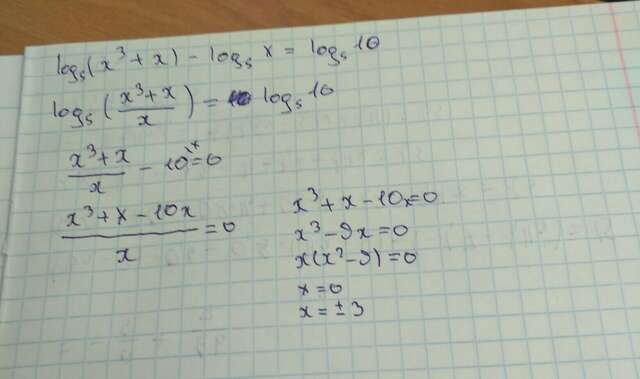 log₅(x³+x) - log₅ x = log₅ 10
log₅ ((x³+x)/x) = log₅ 10
(x³+x)/x - 10 \x = 0
(x³+x-10x)/x = 0
x³+x-10x=0
x³-9x=0
x(x²-9)=0
x=0
x=±3